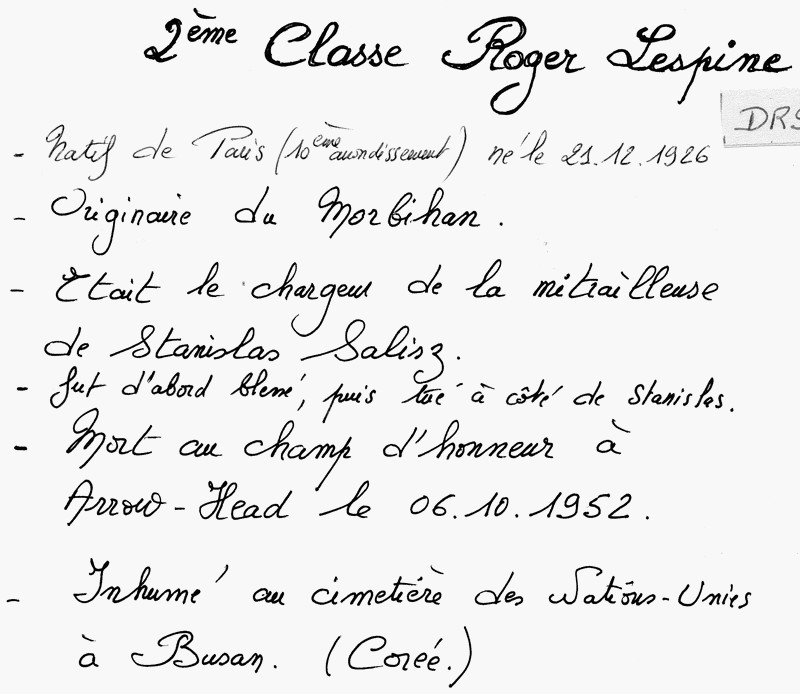 2ème Classe Roger Lespine
DRS
- Natif de Paris (10ème arrondissement) né le 21.12.1926
- Originaire du Morbihan.
- Etait le chargeur de la mitrailleuse
de Stanislas Salisz.
- fut d'abord blessé, puis tué à côté de Stanislas.
- Mort au champ d'honneur à
Arrow-Head le 06.10.1952.
- Inhumé au cimetière des Nations-Unies
à Busan. (Corée.)